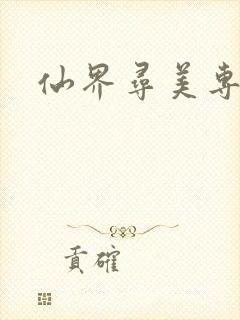 仙界尋美専
貢確